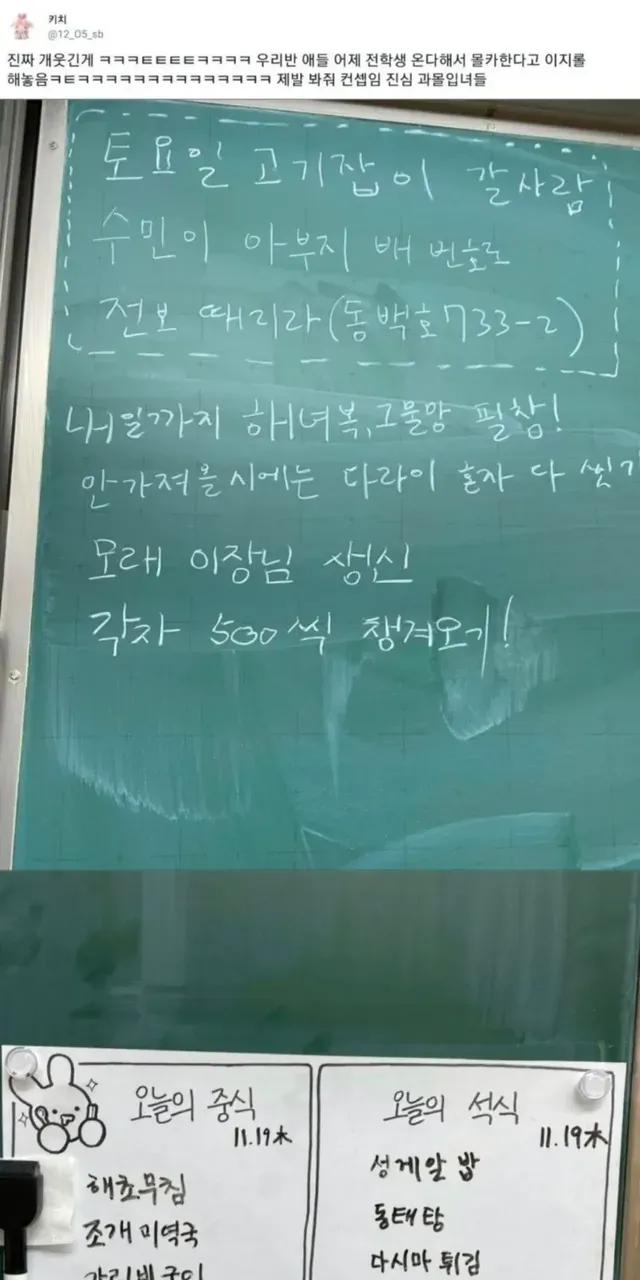 키치
@12_05_sb
진짜 개웃긴게 ㅋㅋㅋㅌㅌㅌㅌㅋㅋㅋㅋ 우리반 애들 어제 전학생 온다해서 몰카한다고 이지롤
해놓음ㅋㅌㅋㅋㅋㅋㅋㅋㅋㅋㅋㅋㅋㅋㅋㅋ 제발 봐줘 컨셉임 진심 과몰입녀들
토요일 고기잡이 갈사람
수민이 아부지 배 번호로
전보 때리라(동백호733-2)
내일까지 해녀복,그물망 필참!
안가져올시에는 다라이 혼자 다 씻기
모래 이장님 생신
각자 500씩 챙겨오기!
오늘의 중식
11.19木
해초무침
조개미역국
가리비구이
오늘의 석식
11.19木
성게알 밥
동태탕
다시마 튀김